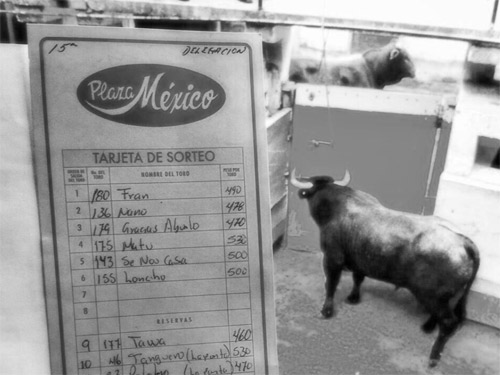 15ª DELEGACION
Plaza México
TARJETA DE SORTEO
ORDEN DE SALIDA DEL TORO No. DEL TORO NOMBRE DEL TORO PESO POR TORO
1 180 Fran 490
2 136 Nano 478
3 179 Gracias Abuelo 470
4 175 Mutu 530
5 143 Se Nos Casa 500
6 155 Loncho 500
7
8
RESERVAS
9 177 Tawa 460
10 46 Tanguero 530
470